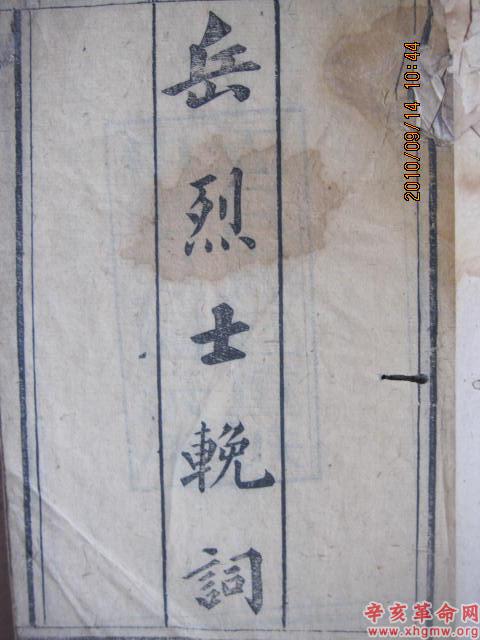 岳烈士輓詞
2010/09/14 10:44
辛亥革命网
www.xhgmw.org